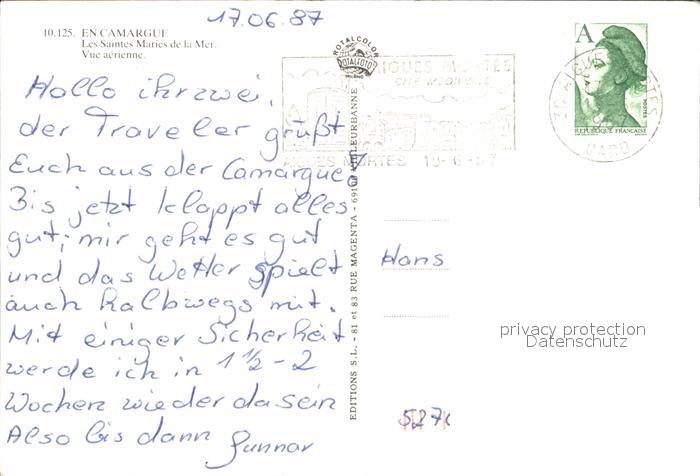 17.06.87
10.125. EN CAMARGUE
Les Saintes Maries de la Mer.
Vue aérienne.
ROTALCOLOR
ROTALFOTO
MILANO
AIGUES MORTES
CITÉ MEDIEVALE
AIGUES MORTES 19-6-87
A
REPUBLIQUE FRANÇAISE
30 AIGUES MORTES
GARD
Hallo ihr zwei,
der Traveler grüßt
Euch aus der Camargue
Bis jetzt klappt alles
gut; mir geht es gut
und das Wetter spielt
auch halbwegs mit.
Mit einiger Sicherheit
werde ich in 1 1/2 - 2
Wochen wieder da sein
Also bis dann Gunnar
EDITIONS S.L. - 81 et 83 RUE MAGENTA - 69100 VILLEURBANNE
Hans
privacy protection
Datenschutz
527